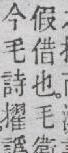 假借也毛
今毛詩擢